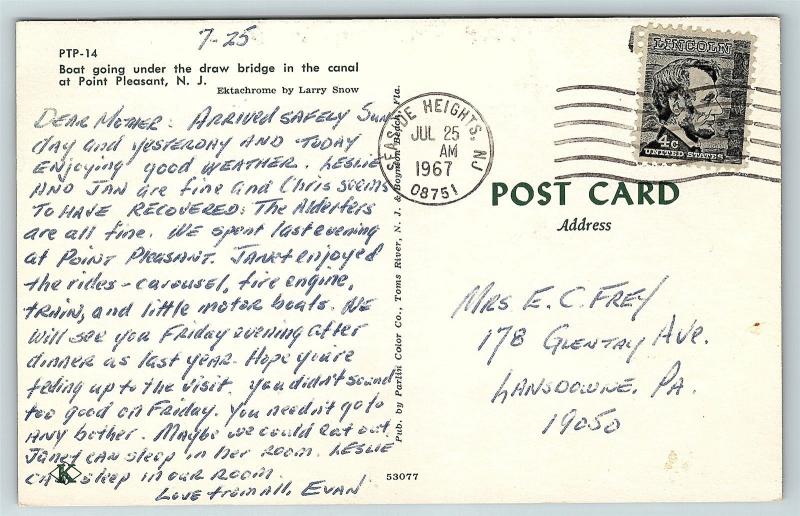 7-25
PTP-14
Boat going under the draw bridge in the canal
at Point Pleasant, N. J.
Ektachrome by Larry Snow
DEAR MOTHER: ARRIVED SAFELY Sun-
day and YESTERDAY AND TODAY
ENJOYING good WEATHER. LESLIE
AND JAN are fine and Chris seems
TO HAVE RECOVERED. The Alderfers
are all fine. WE spent last evening
at POINT PLEASANT. JANET enjoyed
the rides - carousel, fire engine,
TRAIN, and little motor boats. WE
will see you Friday evening after
dinner as last year. Hope you're
feeling up to the visit. You didn't sound
too good on Friday. You needn't go to
ANY bother. Maybe we could eat out.
Janet CAN sleep in her room. LESLIE
CAN sleep in our room.
Love from all, EVAN
K
Pub. by Parlin Color Co., Toms River, N. J. & Boynton Beach, Fla.
53077
SEASIDE HEIGHTS, NJ
JUL 25
AM
1967
08751
LINCOLN
4c
UNITED STATES
POST CARD
Address
MRS E. C. FREY
178 GLENTAY AVE.
LANSDOWNE, PA.
19050